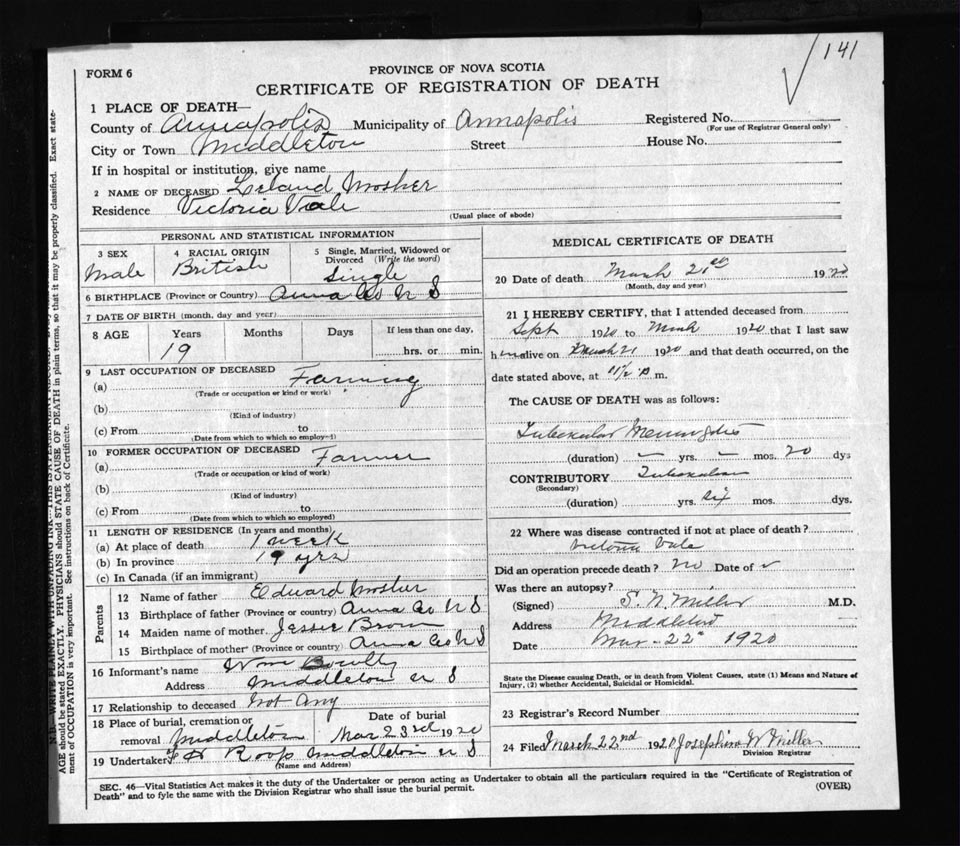 141
FORM 6
PROVINCE OF NOVA SCOTIA
CERTIFICATE OF REGISTRATION OF DEATH
1 PLACE OF DEATH—
County of Annapolis Municipality of Annapolis Registered No.
(For use of Registrar General only)
City or Town Middleton Street House No.
If in hospital or institution, give name
2 NAME OF DECEASED Leland Mosher
Residence Victoria Vale
(Usual place of abode)
PERSONAL AND STATISTICAL INFORMATION
3 SEX 4 RACIAL ORIGIN 5 Single, Married, Widowed or Divorced (Write the word)
Male British Single
6 BIRTHPLACE (Province or Country) Anna Co N S
7 DATE OF BIRTH (month, day and year)
8 AGE Years Months Days If less than one day,
19 hrs. or min.
9 LAST OCCUPATION OF DECEASED
(a) Farming
(Trade or occupation or kind or work)
(b)
(Kind of industry)
(c) From to
(Date from which to which so employed)
10 FORMER OCCUPATION OF DECEASED
(a) Farmer
(Trade or occupation or kind of work)
(b)
(Kind of industry)
(c) From to
(Date from which to which so employed)
11 LENGTH OF RESIDENCE (In years and months)
(a) At place of death 1 week
(b) In province 19 yrs
(c) In Canada (if an immigrant)
Parents
12 Name of father Edward Mosher
13 Birthplace of father (Province or country) Anna Co N S
14 Maiden name of mother Jessie Brown
15 Birthplace of mother (Province or country) Anna Co N S
16 Informant's name Wm
Address Middleton N S
17 Relationship to deceased Not Any
18 Place of burial, cremation or removal Middleton Date of burial Mar 23rd 1920
19 Undertaker Roop Middleton N S
(Name and Address)
MEDICAL CERTIFICATE OF DEATH
20 Date of death March 21st 1920
(Month, day and year)
21 I HEREBY CERTIFY, that I attended deceased from
Sept 1920 to March 1920 that I last saw
h alive on March 21 1920 and that death occurred, on the
date stated above, at m.
The CAUSE OF DEATH was as follows:
Tubercular Meningitis
(duration) — yrs. — mos. 20 dys
CONTRIBUTORY
(Secondary)
(duration) yrs. Six mos. dys.
22 Where was disease contracted if not at place of death?
Victoria Vale
Did an operation precede death? no Date of
Was there an autopsy?
(Signed) S. N. Miller M.D.
Address Middleton
Date Mar-22 1920
State the Disease causing Death, or in death from Violent Causes, state (1) Means and Nature of
Injury, (2) whether Accidental, Suicidal or Homicidal.
23 Registrar's Record Number
24 Filed March 22nd 1920 Miller
Division Registrar
SEC. 46—Vital Statistics Act makes it the duty of the Undertaker or person acting as Undertaker to obtain all the particulars required in the "Certificate of Registration of
Death" and to fyle the same with the Division Registrar who shall issue the burial permit. (OVER)
AGE should be stated EXACTLY. PHYSICIANS should STATE CAUSE OF DEATH in plain terms, so that it may be properly classified. Exact state-
ment of OCCUPATION is very important. See instructions on back of Certificate.